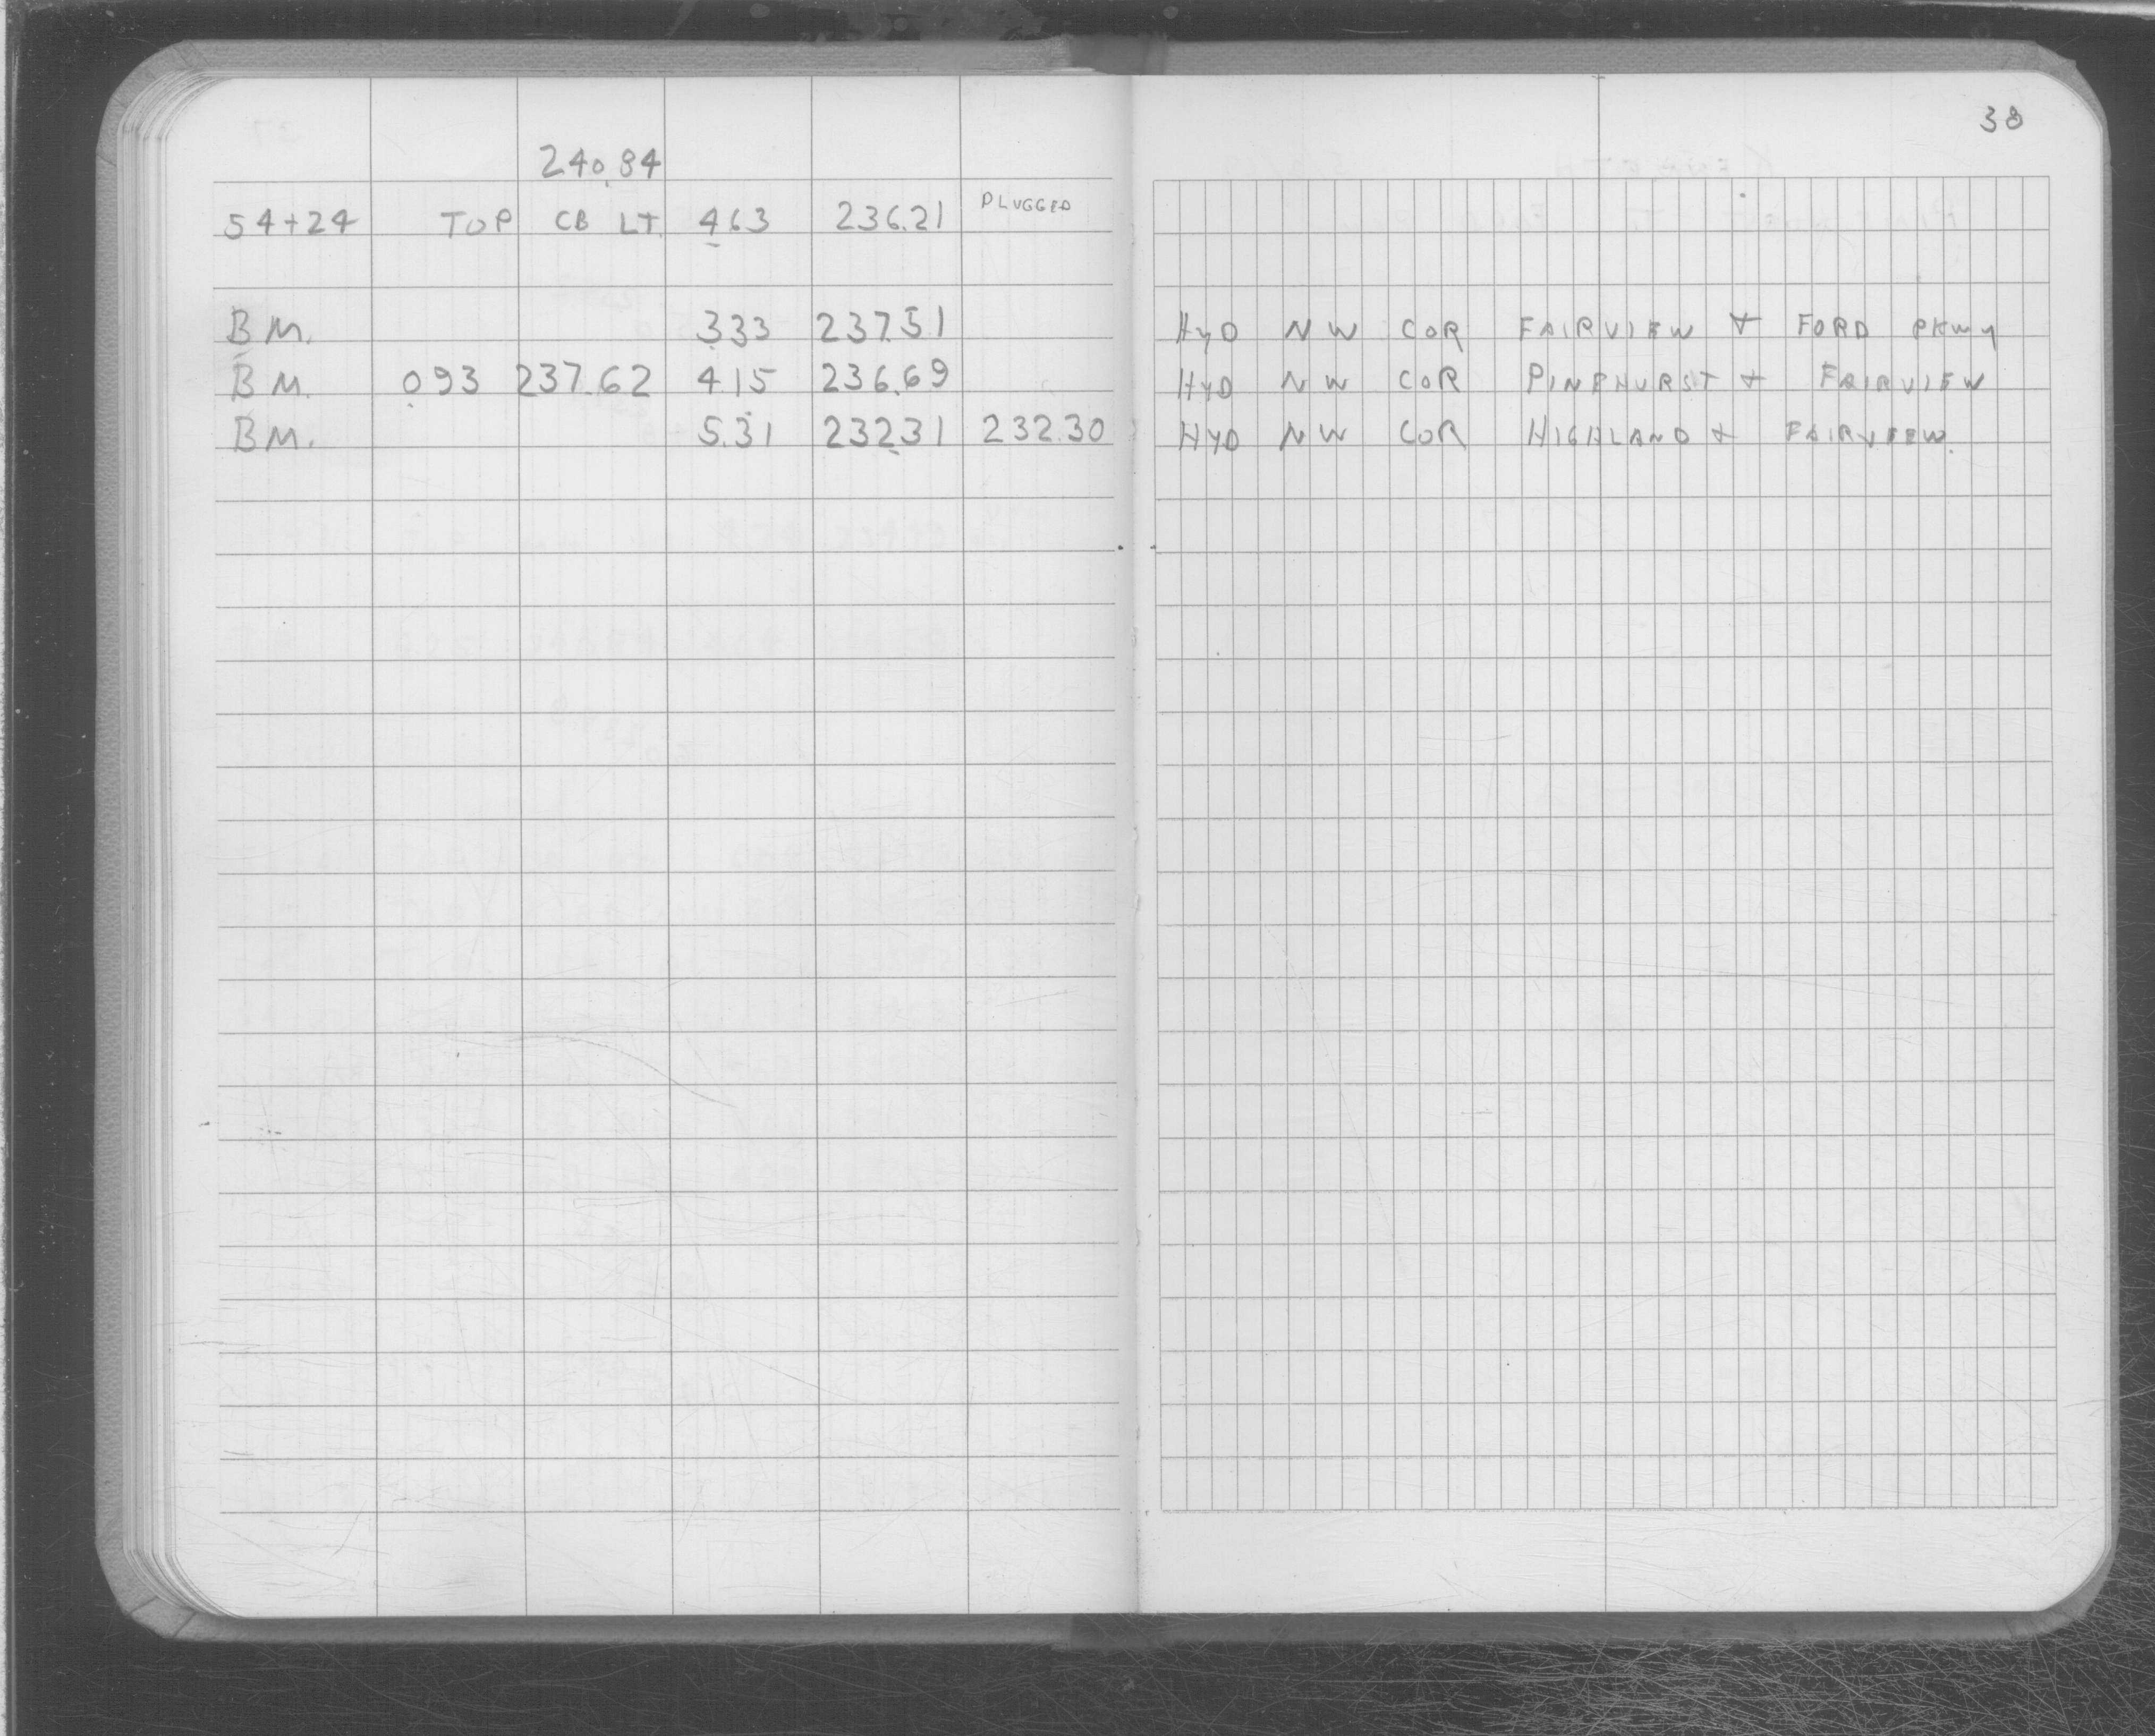 38
240.84
54+24 TOP CB LT. 4.63 236.21 PLUGGED
BM. 3.33 237.51 HYD NW COR FAIRVIEW & FORD PKWY
BM. 0.93 237.62 4.15 236.69 HYD NW COR PINEHURST & FAIRVIEW
BM. 5.31 232.31 232.30 HYD NW COR HIGHLAND & FAIRVIEW.